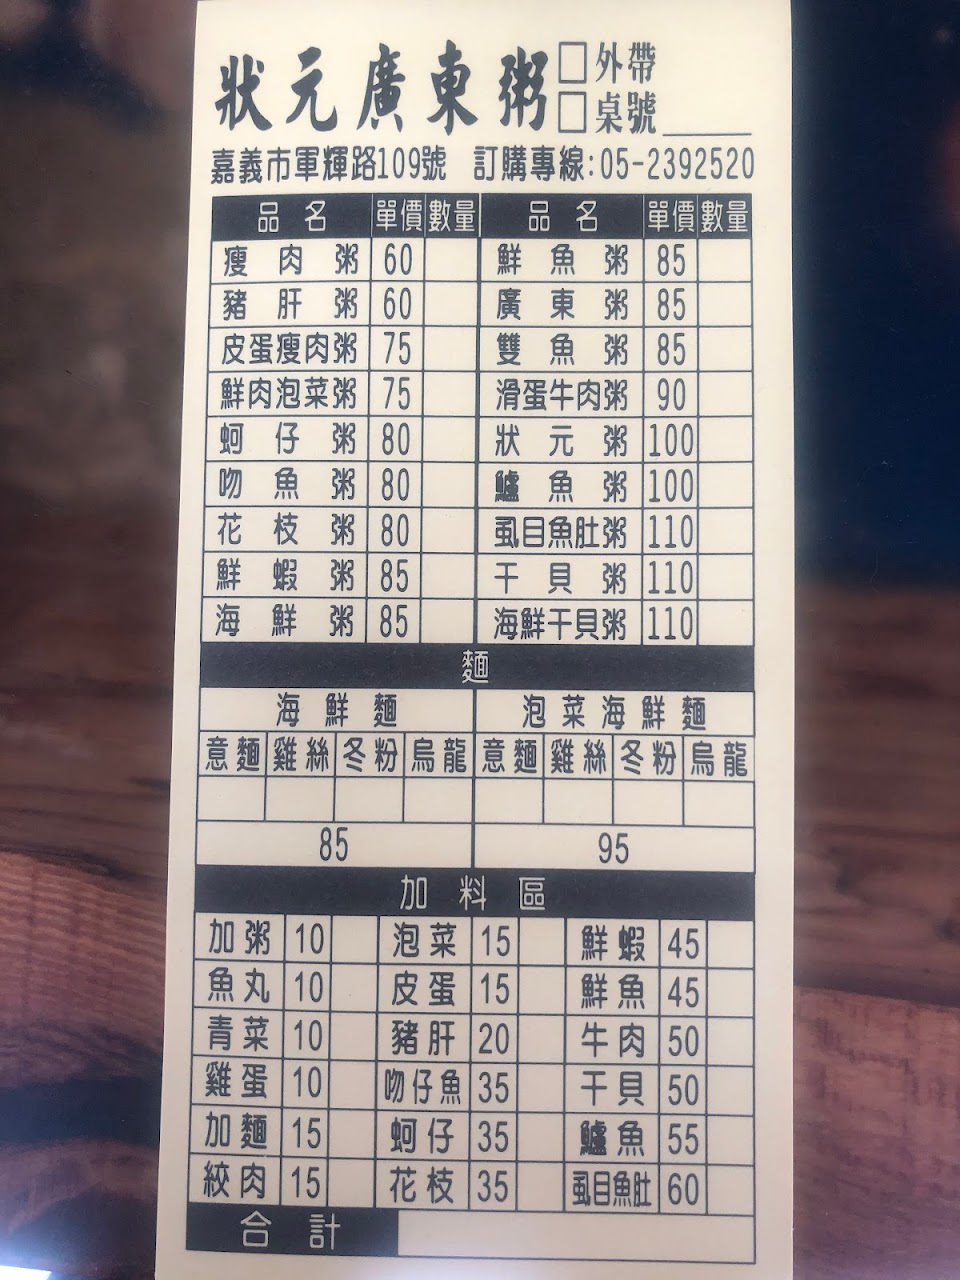 狀元廣東粥 □外帶
□桌號______
嘉義市軍輝路109號 訂購專線:05-2392520
品名 單價 數量 品名 單價 數量
瘦肉粥 60 鮮魚粥 85
豬肝粥 60 廣東粥 85
皮蛋瘦肉粥 75 雙魚粥 85
鮮肉泡菜粥 75 滑蛋牛肉粥 90
蚵仔粥 80 狀元粥 100
吻魚粥 80 鱸魚粥 100
花枝粥 80 虱目魚肚粥 110
鮮蝦粥 85 干貝粥 110
海鮮粥 85 海鮮干貝粥 110
麵
海鮮麵 泡菜海鮮麵
意麵 雞絲 冬粉 烏龍 意麵 雞絲 冬粉 烏龍
85 95
加料區
加粥 10 泡菜 15 鮮蝦 45
魚丸 10 皮蛋 15 鮮魚 45
青菜 10 豬肝 20 牛肉 50
雞蛋 10 吻仔魚 35 干貝 50
加麵 15 蚵仔 35 鱸魚 55
絞肉 15 花枝 35 虱目魚肚 60
合計